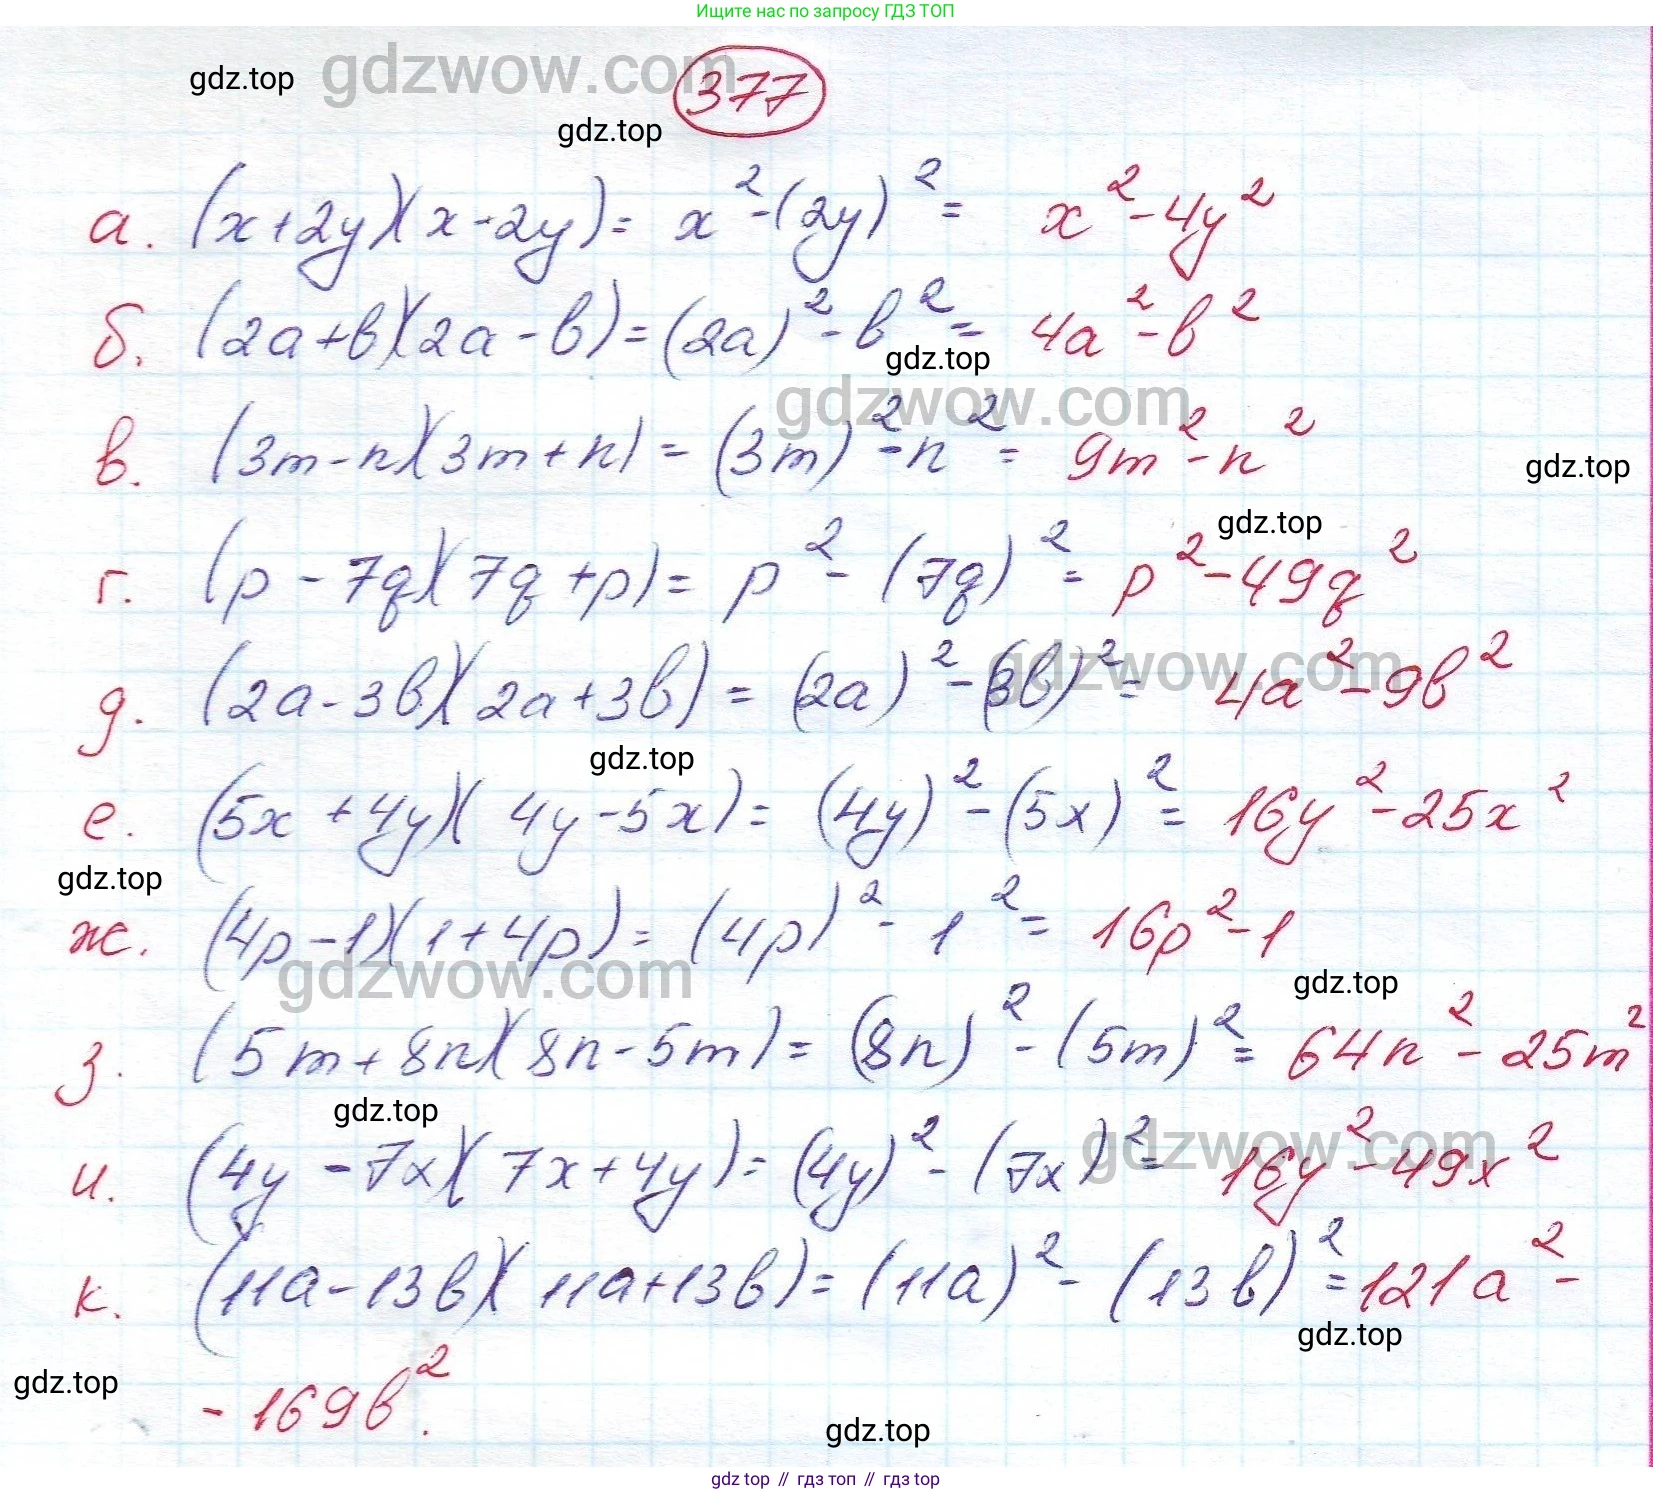 Ищите нас по запросу ГДЗ ТОП
gdz.top gdzwow.com 377
gdz.top
а. (x+2y)(x-2y)= x²-(2y)²= x²-4y²
б. (2a+b)(2a-b)=(2a)²-b²= 4a²-b²
gdz.top
gdzwow.com
в. (3m-n)(3m+n)=(3m)²-n²= 9m²-n²
gdz.top
gdz.top
г. (p-7q)(7q+p)= p²-(7q)²= p²-49q²
gdzwow.com
д. (2a-3b)(2a+3b)=(2a)²-(3b)²= 4a²-9b²
gdz.top
е. (5x+4y)(4y-5x)=(4y)²-(5x)²= 16y²-25x²
gdz.top
ж. (4p-1)(1+4p)=(4p)²-1²= 16p²-1
gdzwow.com
gdz.top
з. (5m+8n)(8n-5m)=(8n)²-(5m)²= 64n²-25m²
gdz.top
gdzwow.com
и. (4y-7x)(7x+4y)=(4y)²-(7x)²= 16y²-49x²
к. (11a-13b)(11a+13b)=(11a)²-(13b)²=121a²-
gdz.top
gdz.top
-169b².
gdz.top
gdz top // гдз топ // гдз top